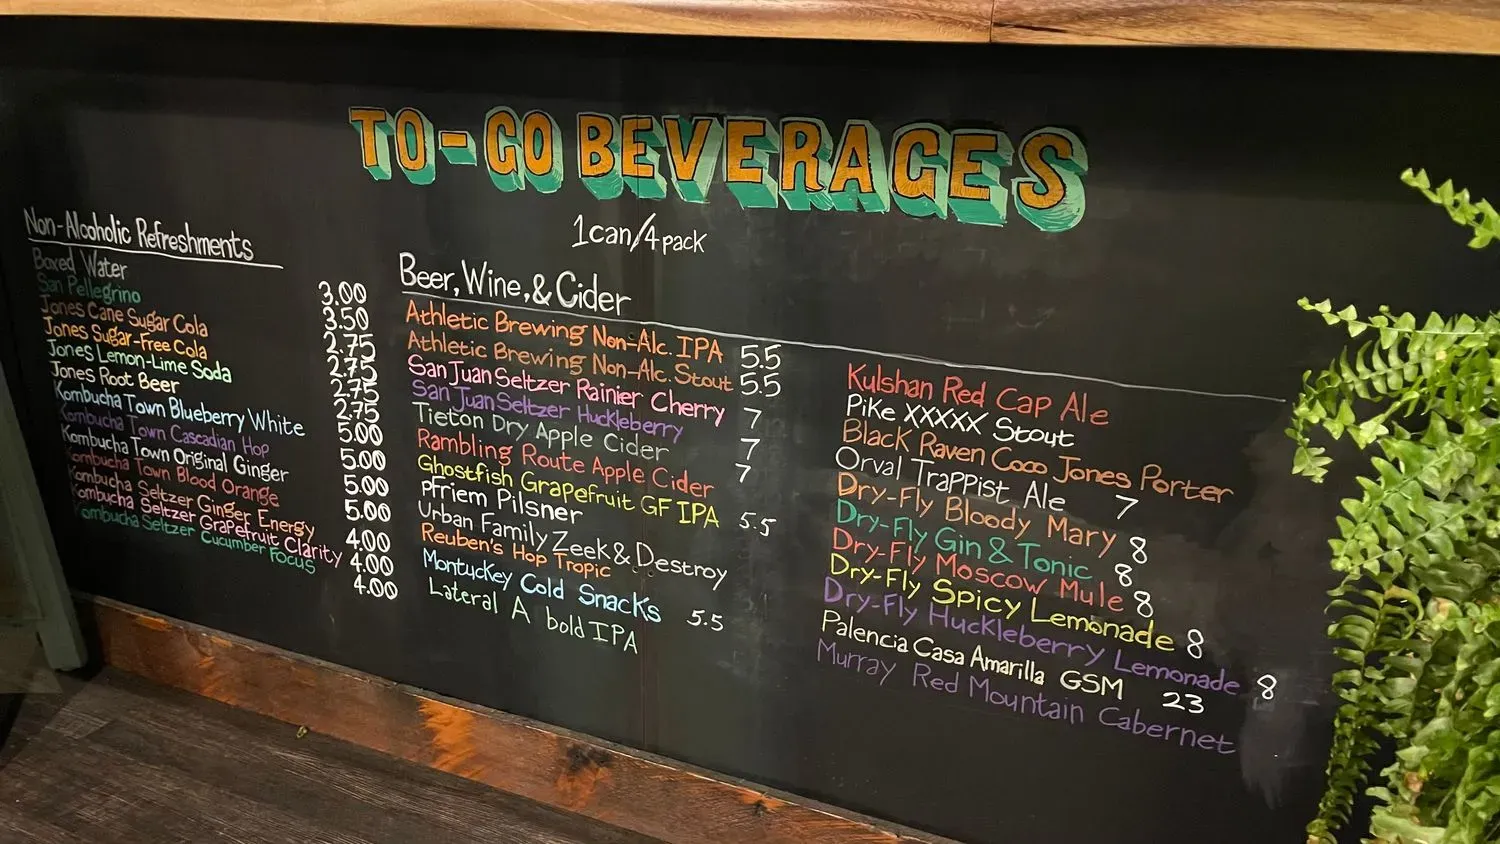 TO-GO BEVERAGES
1can/4pack
Non-Alcoholic Refreshments
Boxed Water 3.00
San Pellegrino 3.50
Jones Cane Sugar Cola 2.75
Jones Sugar-Free Cola 2.75
Jones Lemon-Lime Soda 2.75
Jones Root Beer 2.75
Kombucha Town Blueberry White 5.00
Kombucha Town Cascadian Hop 5.00
Kombucha Town Original Ginger 5.00
Kombucha Town Blood Orange 5.00
Kombucha Seltzer Ginger Energy 4.00
Kombucha Seltzer Grapefruit Clarity 4.00
Kombucha Seltzer Cucumber Focus 4.00
Beer, Wine, & Cider
Athletic Brewing Non-Alc. IPA 5.5
Athletic Brewing Non-Alc. Stout 5.5
San Juan Seltzer Rainier Cherry 7
San Juan Seltzer Huckleberry 7
Tieton Dry Apple Cider 7
Rambling Route Apple Cider
Ghostfish Grapefruit GF IPA 5.5
pFriem Pilsner
Urban Family Zeek & Destroy
Reuben's Hop Tropic
Montucky Cold Snacks 5.5
Lateral A bold IPA
Kulshan Red Cap Ale
Pike XXXXX Stout
Black Raven Coco Jones Porter
Orval Trappist Ale 7
Dry-Fly Bloody Mary 8
Dry-Fly Gin & Tonic 8
Dry-Fly Moscow Mule 8
Dry-Fly Spicy Lemonade 8
Dry-Fly Huckleberry Lemonade 8
Palencia Casa Amarilla GSM 23
Murray Red Mountain Cabernet